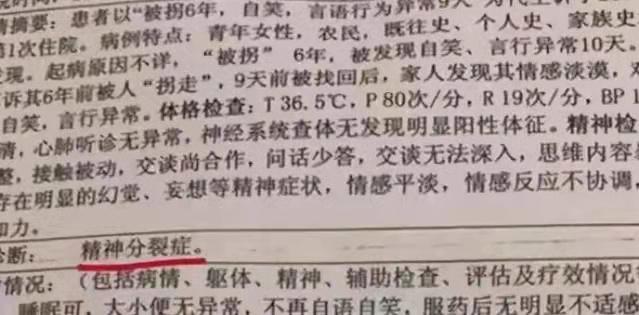 摘要：患者以“被拐6年，自笑，言语行为异常9天
第1次住院。病例特点：青年女性，农民，既往史、个人史、家族史
现。起病原因不详，“被拐”6年，被发现自笑、言行异常10天。
诉其6年前被人“拐走”，9天前被找回后，家人发现其情感淡漠，
自笑，言行异常。体格检查：T 36.5℃，P 80次/分，R 19次/分，BP 1
清，心肺听诊无异常，神经系统查体无发现明显阳性体征。精神检
整，接触被动，交谈尚合作，问话少答，交谈无法深入，思维内容
存在明显的幻觉、妄想等精神症状，情感平淡，情感反应不协调，
知力。
诊断： 精神分裂症。
情况：（包括病情、躯体、精神、辅助检查、评估及疗效情况
睡眠可，大小便无异常，不再自语自笑，服药后无明显不适感